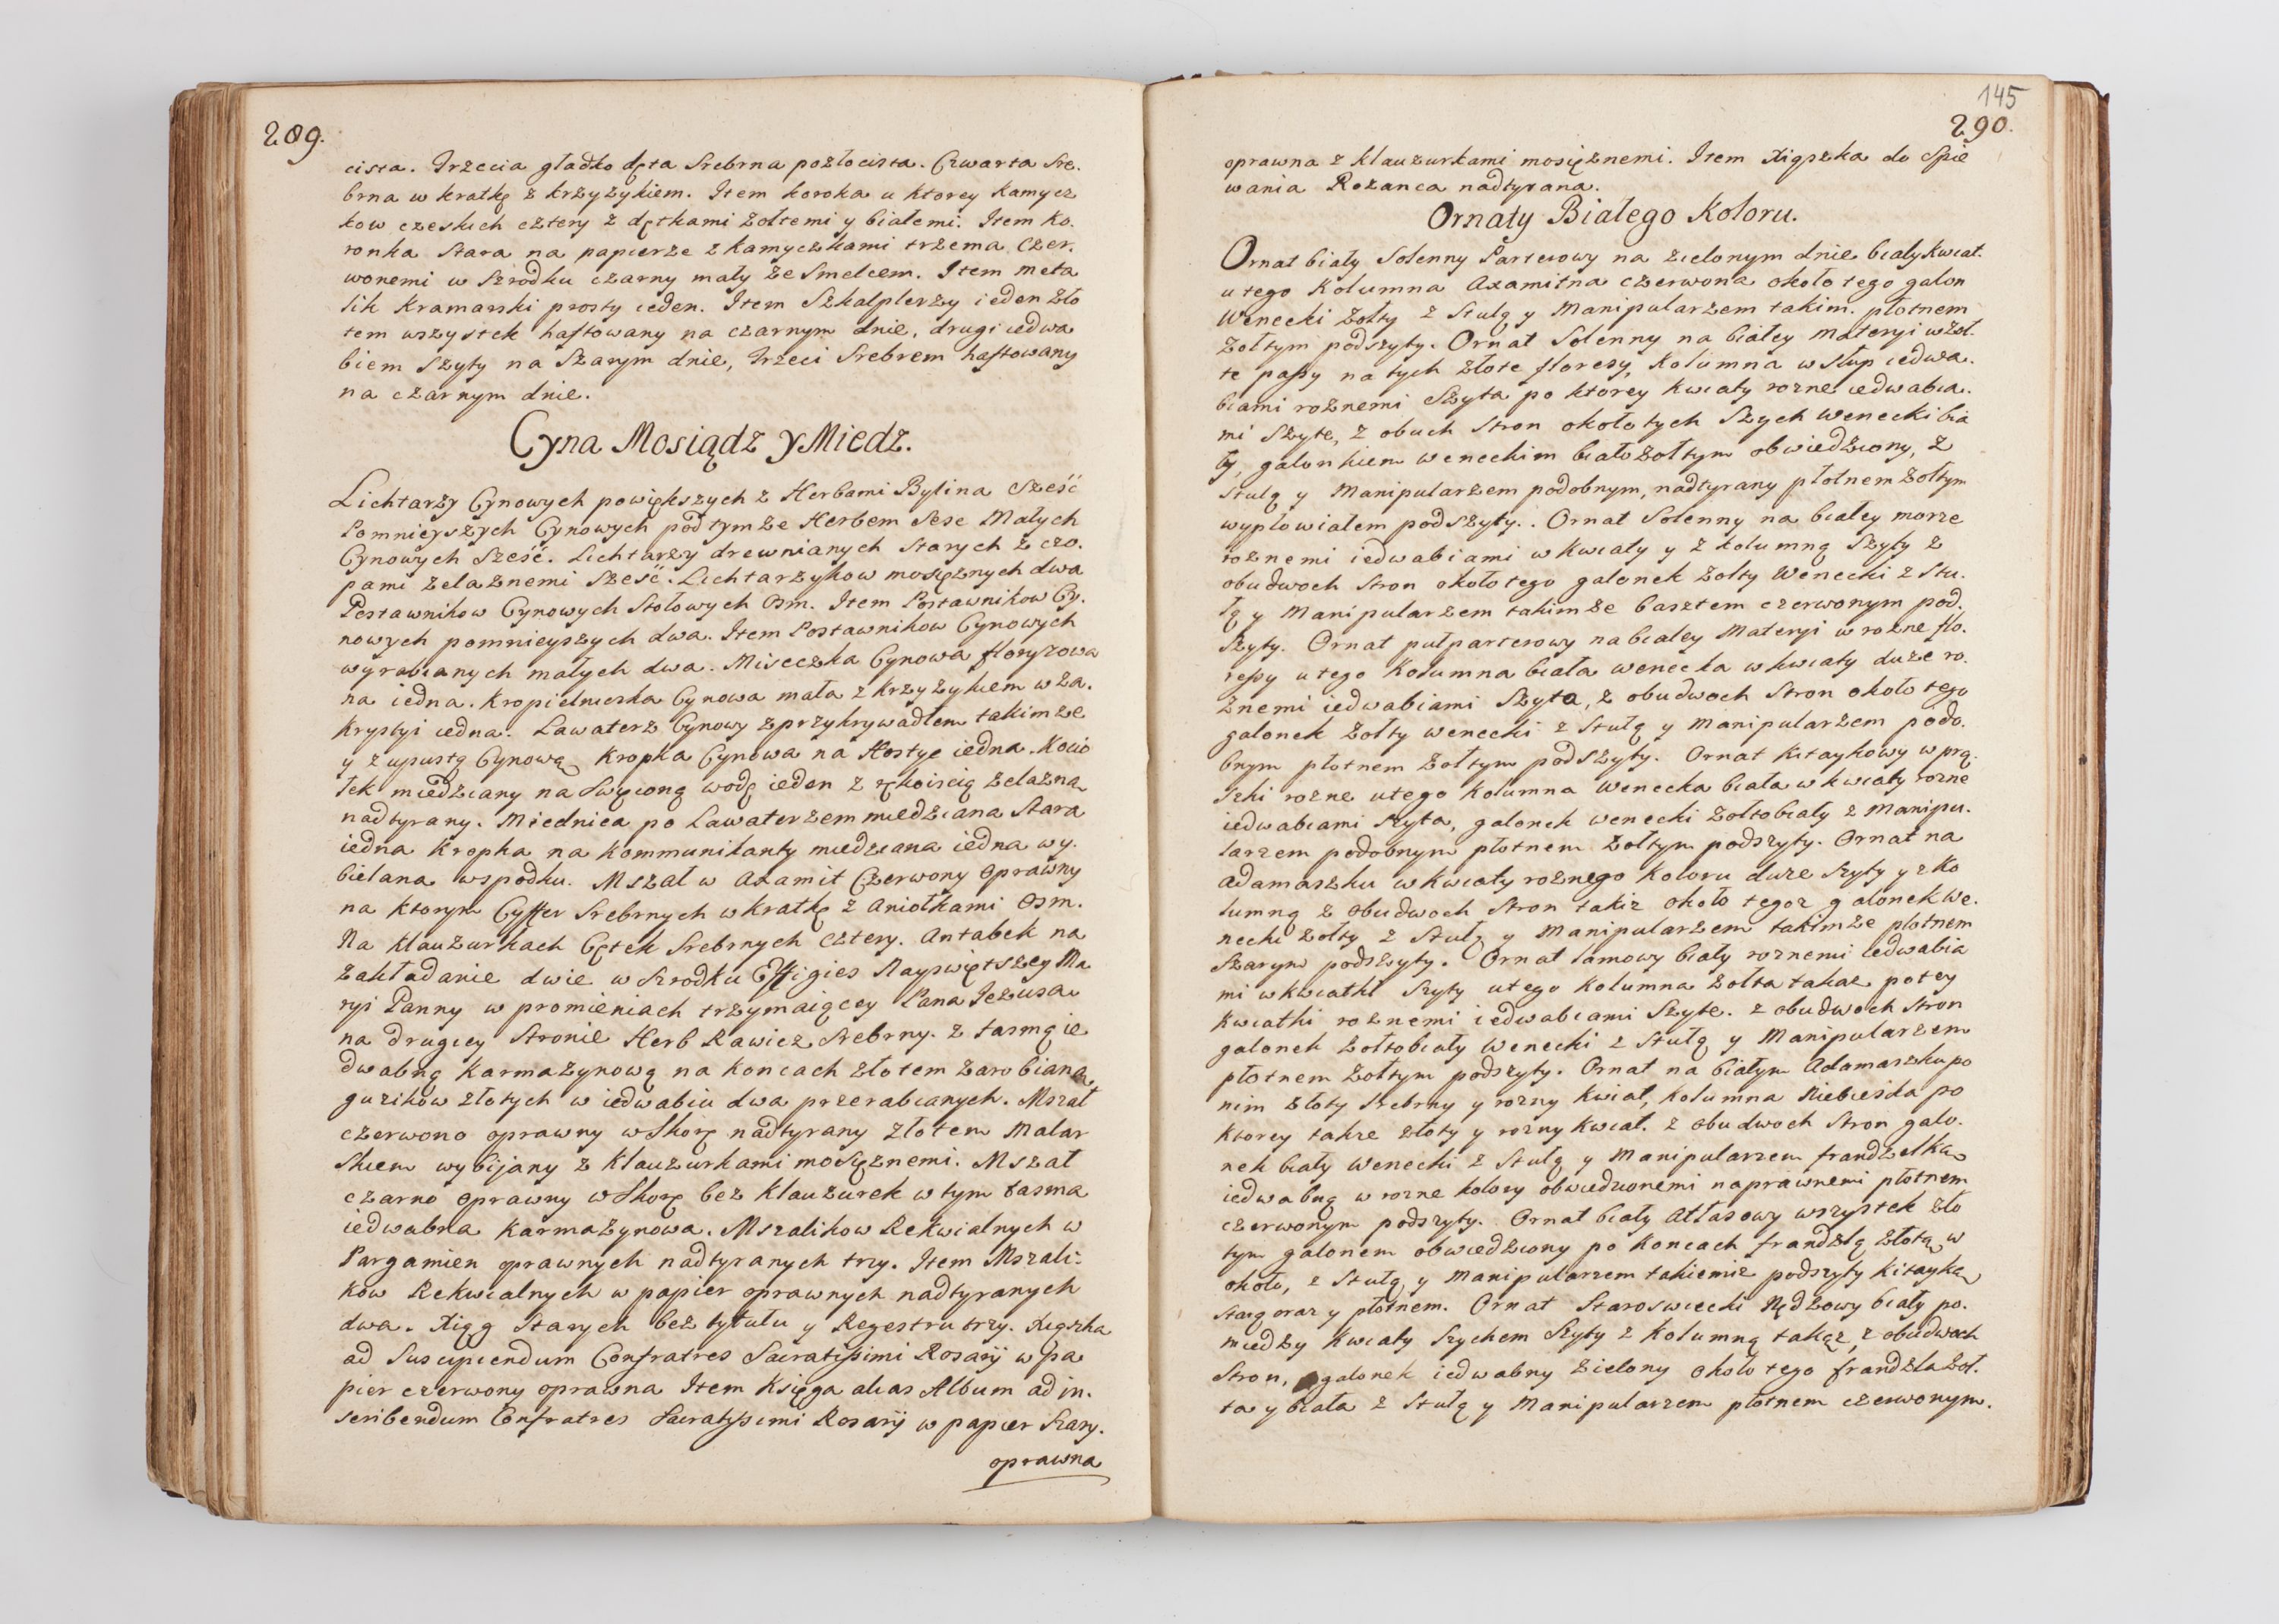 289.
cista. Trzecia gładko dęta Srebrna pozłocista. Czwarta Sre.
brna w kratkę z krzyżykiem. Item koroka u ktorey kamycz
kow czeskich cztery z dętkami żołtemi y białemi. Item Ko.
ronka Stara na papierze z kamyczkami trzema Czer.
wonemi w Srodku czarny mały ze Smelcem. Item meta
lik Kramarski prosty ieden. Item Szkalplerzy ieden zło
tem wszystek haftowany na czarnym dnie, drugi iedwa
biem Szyty na Szarym dnie, trzeci Srebrem haftowany
na czarnym dnie.
Cyna Mosiądz y Miedz.
Lichtarzy Cynowych powiększych z Herbami Bylina Sześć
Pomnieyszych Cynowych pod tymze Herbem Sese Małych
Cynowych Sześć. Lichtarzy drewnianych Starych z czo.
pami żelaznemi Sześć. Lichtarzykow mosiężnych dwa
Postawnikow Cynowych Stołowych Osm. Item Postawnikow Cy.
nowych pomnieyszych dwa. Item Postawnikow Cynowych
wyrabianych małych dwa. Miseczka Cynowa floryzowa
na iedna. Kropielniczka Cynowa mała z krzyżykiem w Za.
krystyi iedna. Lawaterz Cynowy z przykrywadłem takimze
y z upustą Cynową Kropka Cynowa na Hostye iedna. Kocio
łek miedziany na Swięconą wodę ieden z rękoiscią żelazną
nadtyrany. Miednica po Lawaterzem miedziana Stara
iedna Kropka na kommunikanty miedziana iedna wy.
bielana wspodku. Mszał w Axamit Czerwony Oprawny
na ktorym Cyffer Srebrnych w kratkę z Aniołkami Osm.
Na Klauzurkach Cętek Srebrnych Cztery. Antabek na
zakładanie dwie w Srodku Effigies Nayswiętszey Ma
ryi Panny w promieniach trzymaiącey Pana Iezusa
na drugiey Stronie Herb Rawicz Srebrny. z tasmą ie
dwabną Karmazynową na Koncach złotem zarobianą
guzikow złotych w iedwabiu dwa przerabianych. Mszał
czerwono oprawny w Skorę nadtyrany złotem Malar
skiem wybijany z Klauzurkami mosiężnemi. Mszał
czarno oprawny w Skorę bez Klauzurek w tym tasma
iedwabna Karmazynowa. Mszalikow Rekwialnych w
Pargamien oprawnych nadtyranych trzy. Item Mszali:
kow Rekwialnych w papier oprawnych nadtyranych
dwa. Xiąg Starych bez tytułu y Regestru trzy. Xiąszka
ad Suscipiendum Confratres Sacratissimi Rosarij w pa
pier czerwony oprawna Item Księga alias Album ad in.
scribendum Confratres Sacratissimi Rosarij w papier Szary.
oprawna
145
290.
oprawna z Klauzurkami mosiężnemi. Item Xiąszka do Spie
wania Rozanca nadtyrana.
Ornaty Białego Koloru.
Ornat biały Solenny Parterowy na zielonym dnie biały kwiat.
u tego Kolumna Axamitna czerwona około tego galon
Wenecki żołty z Stułą y Manipularzem takim. płotnem
żołtym podszyty. Ornat Solenny na białey Materyi w żoł.
te passy na tych złote floresy, Kolumna w Słup iedwa.
biami roznemi Szyta po ktorey kwiaty rozne iedwabia.
mi Szyte, z obuch Stron około tych Szych Wenecki bia
ły, galonkiem weneckim białożołtym obwiedziony, z
Stułą y Manipularzem podobnym, nadtyrany płotnem żołtym
wypłowiałem podszyty. Ornat Solenny na białey morze
roznemi iedwabiami w kwiaty y z kolumną Szyty z
obudwoch Stron około tego galonek żołty Wenecki z Stu.
łą y Manipularzem takimze basztem czerwonym pod.
Szyty. Ornat pułparterowy na białey Materyi w rozne flo.
resy u tego Kolumna biała wenecka w kwiaty duże ro.
żnemi iedwabiami Szyta, z obudwoch Stron około tego
galonek żołty wenecki z Stułą y Manipularzem podo.
bnym płotnem żołtym podszyty. Ornat Kitaykowy w prą.
szki rozne u tego Kolumna Wenecka biała w kwiaty rozne
iedwabiami Szyta, galonek wenecki żołtobiały z Manipu.
larzem podobnym płotnem żołtym podszyty. Ornat na
Adamaszku w kwiaty roznego Koloru duże Szyty y z Ko
lumną z obudwoch Stron takiż około tegoz galonek We.
necki żołty z Stułą y Manipularzem takimże płotnem
Szarym podszyty. Ornat lamowy biały roznemi iedwabia
mi w kwiatki Szyty u tego Kolumna żołta takaz po tey
kwiatki roznemi iedwabiami Szyte. z obudwoch Stron
galonek żołtobiały Wenecki z Stułą y Manipularzem
płotnem żołtym podszyty. Ornat na białym Adamaszku po
nim złoty Srebrny y rozny kwiat, Kolumna Niebieska po
ktorey takze złoty y rozny kwiat. z obudwoch Stron galo.
nek biały Wenecki z Stułą y Manipularzem frandzelką
iedwabną w rozne kolory obwiedzionemi naprawnemi płotnem
czerwonym podszyty. Ornat biały Atłasowy wszystek zło
tym galonem obwiedziony po Koncach frandzlą złotą w
około, z Stułą y Manipularzem takiemiz podszyty kitayką
Starą oraz y płotnem. Ornat Staroswiecki Nędzowy biały po.
między kwiaty Szychem Szyty z kolumną takąz, z obudwoch
Stron, galonek iedwabny zielony około tego frandzla żoł.
ta y biała z Stułą y Manipularzem płotnem czerwonym.